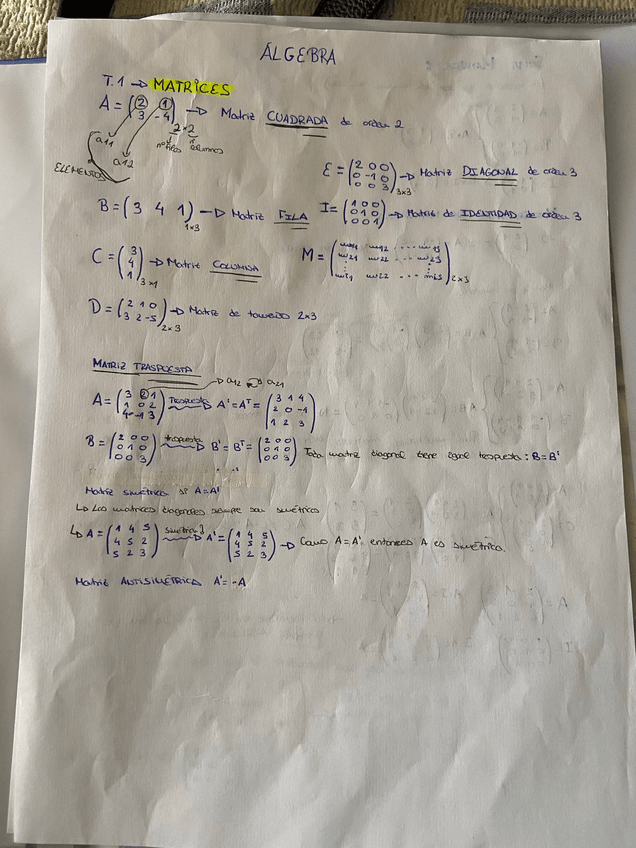 ÁLGEBRA
T.1 → MATRICES
A = (2 1 / 3 -4) 2×2 → Matriz CUADRADA de orden 2
a11
a12
nº filas
columnas
ELEMENTOS
E = (2 0 0 / 0 -1 0 / 0 0 3) 3×3 → Matriz DIAGONAL de orden 3
B = (3 4 1) 1×3 → Matriz FILA
I = (1 0 0 / 0 1 0 / 0 0 1) → Matriz de IDENTIDAD de orden 3
C = (3 / 4 / 1) 3×1 → Matriz COLUMNA
M = (m11 m12 ... m13 / m21 m22 ... m23 / ⋮ ⋮ / m21 m22 ... ) 2×3
D = (2 1 0 / 3 2 -5) 2×3 → Matriz de tamaño 2×3
MATRIZ TRASPUESTA
→ a12 a21
A = (3 2 1 / 1 0 2 / 4 -1 3) Traspuesta → A' = Aᵀ = (3 1 4 / 2 0 -1 / 1 2 3)
B = (2 0 0 / 0 1 0 / 0 0 3) traspuesta → B' = Bᵀ = (2 0 0 / 0 1 0 / 0 0 3) Toda matriz diagonal tiene igual traspuesta: B = B'
Matriz simétrica si A = A'
↳ Las matrices diagonales siempre son simétricas
↳ A = (1 4 5 / 4 5 2 / 5 2 3) simétrica? → A' = (1 4 5 / 4 5 2 / 5 2 3) → Como A = A' entonces A es simétrica.
Matriz ANTISIMÉTRICA A' = -A